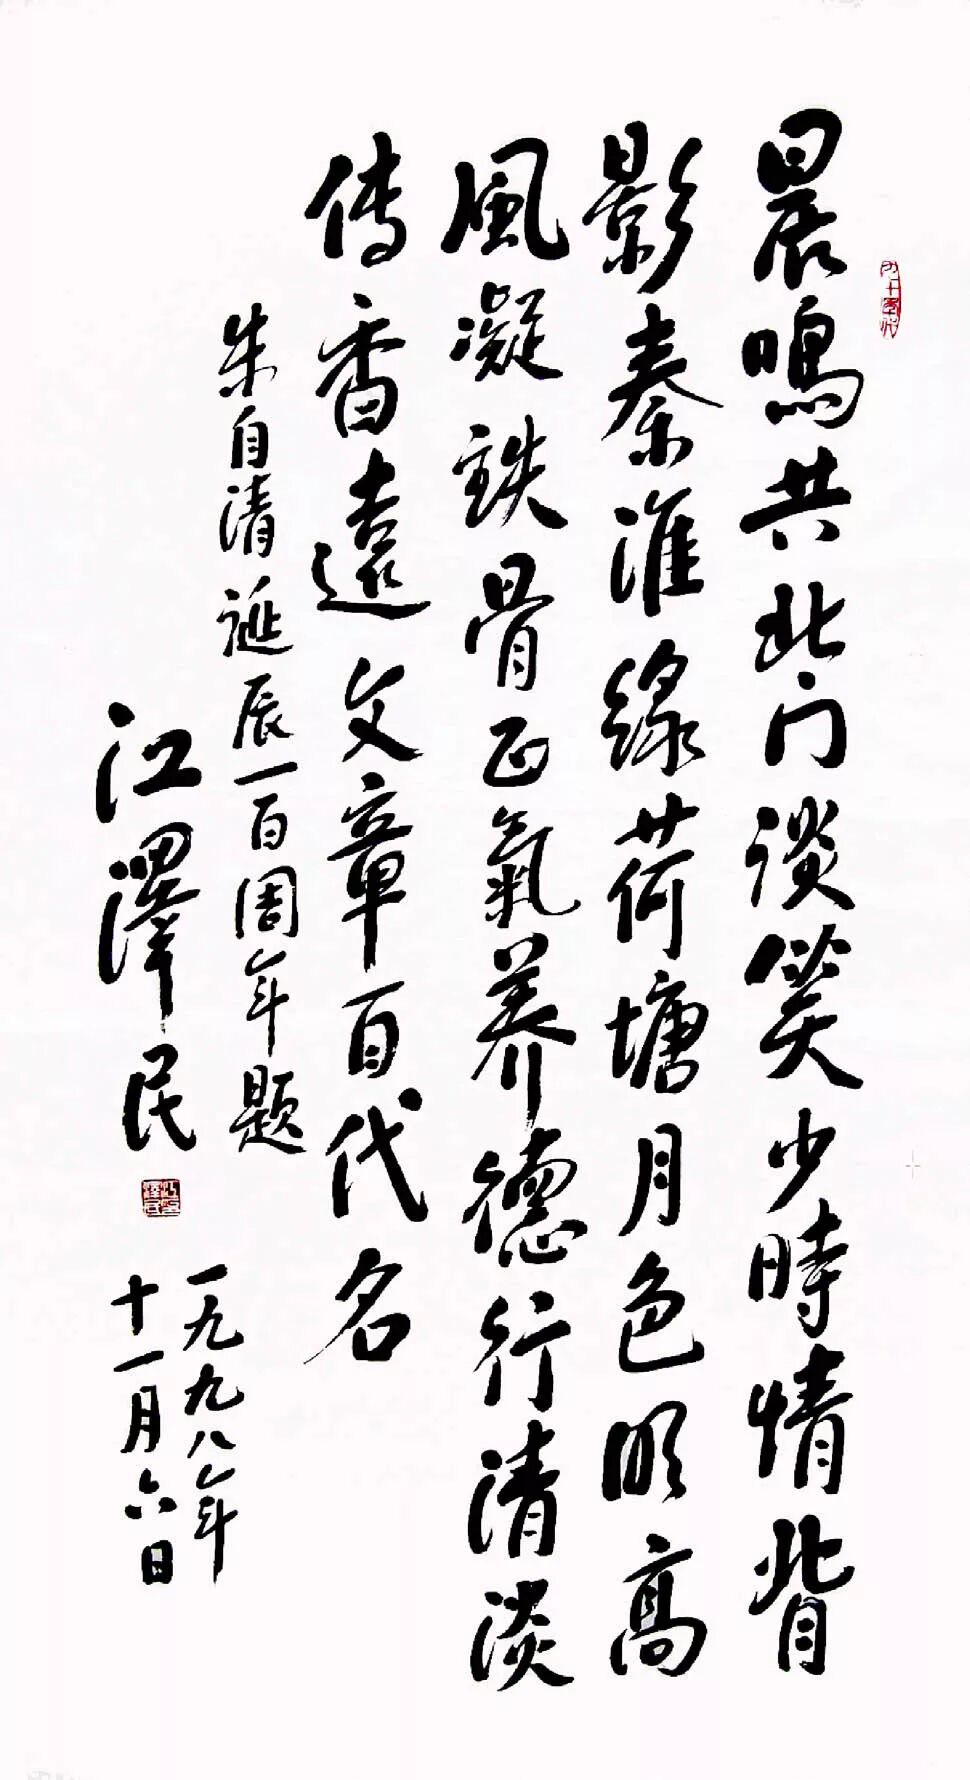 晨鳴共北门谈笑少時情背
影秦淮緑荷塘月色明高
風凝鉄骨正氣养德行清淡
传香遠文章百代名
朱自清诞辰一百周年题
江澤民
一九九八年
十一月六日